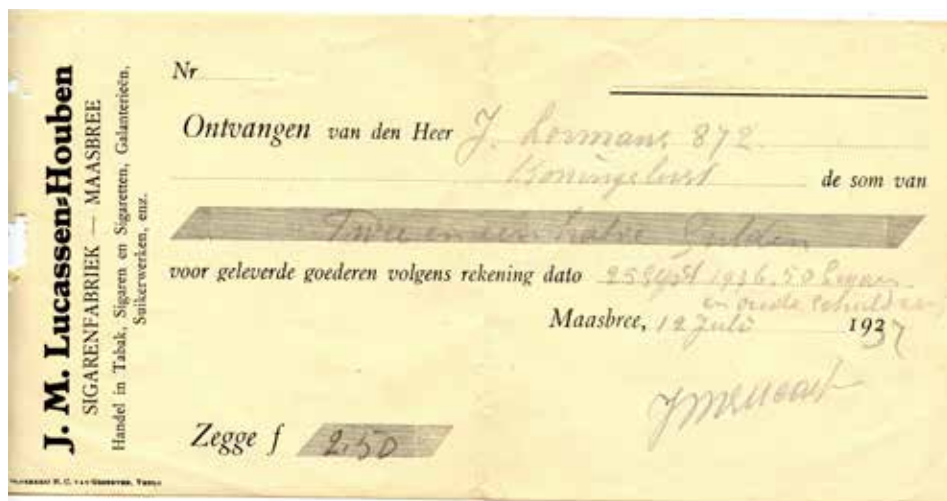 J. M. Lucassen-Houben
SIGARENFABRIEK — MAASBREE
Handel in Tabak, Sigaren en Sigaretten, Galanterieën,
Suikerwerken, enz.
Nr
Ontvangen van den Heer J. Lormans 872
Koningslust de som van
Twee en een halve Gulden
voor geleverde goederen volgens rekening dato 25 Sept 1936. 50
en oude schuld
Maasbree, 12 Juli 1937
Zegge f 2.50